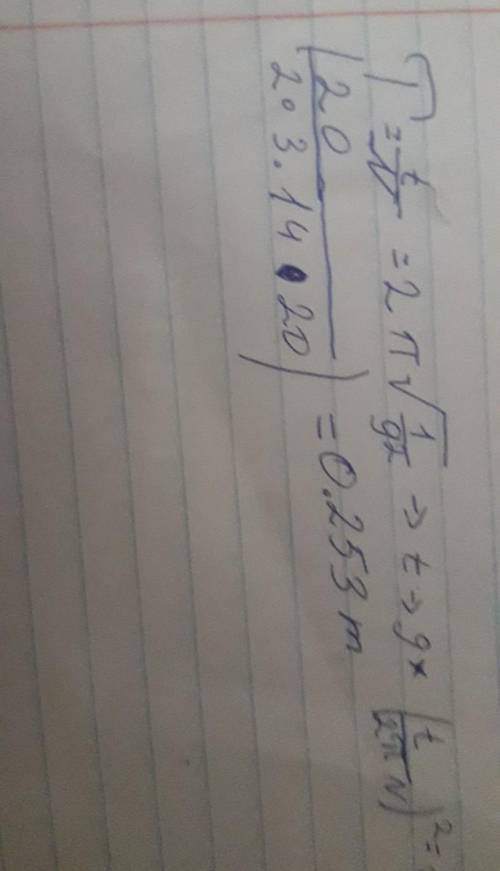 T = t/N = 2π√(1/gx) ⇒ t ⇒ g × (t/2πN)² =
(20/2·3.14·20) = 0.253 m